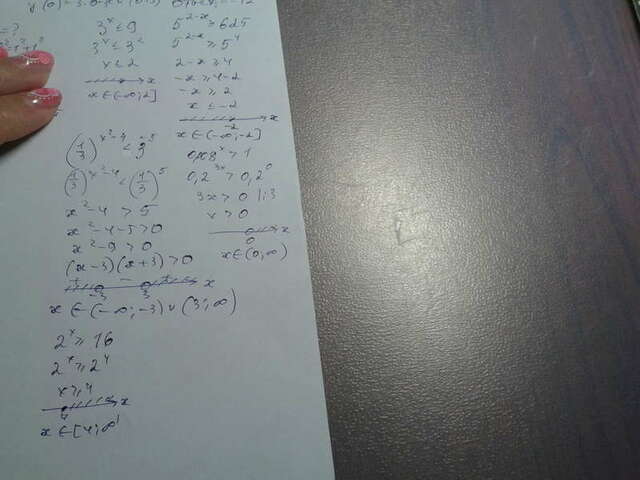 3^x ≤ 9
3^x ≤ 3^2
x ≤ 2
x
x ∈ (-∞; 2]
5^{2-x} ≥ 625
5^{2-x} ≥ 5^4
2-x ≥ 4
-x ≥ 4-2
-x ≥ 2
x ≤ -2
x
-2
x ∈ (-∞; -2]
(1/3)^{x^2-4}
(1/3)^{x^2-4} < (1/3)^5
x^2-4 > 5
x^2-4-5>0
x^2-9 > 0
(x-3)(x+3)>0
+ - + x
-3 3
x ∈ (-∞; -3) ∪ (3; ∞)
0,008^x > 1
0,2^{3x} > 0,2^0
3x > 0 |:3
x > 0
x
0
x ∈ (0; ∞)
2^x ≥ 16
2^x ≥ 2^4
x ≥ 4
x
4
x ∈ [4; ∞